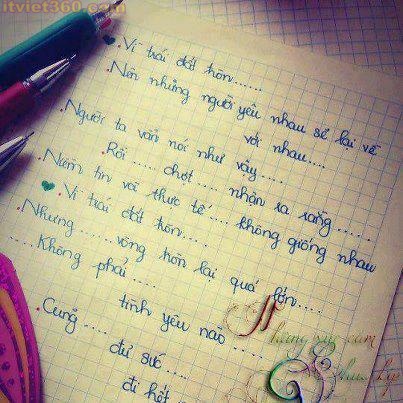 itviet360.com
. Vì trái đất tròn......
. Nên những người yêu nhau sẽ lại về
với nhau....
. Người ta vẫn nói như vậy.....
. Rồi ..... chợt .... nhận ra rằng......
. Niềm tin và thực tế.... không giống nhau
. Vì trái đất tròn....
. Nhưng ..... vòng tròn lại quá lớn....
.... Không phải ....
tình yêu nào ....
. Cũng ....
đủ sức....
đi hết